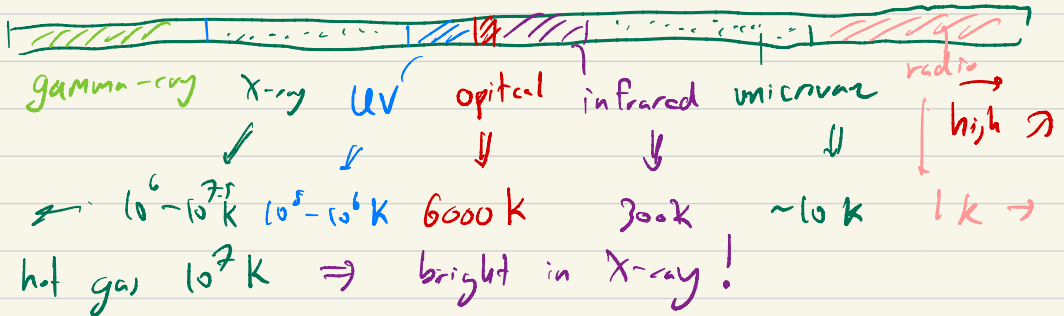 gamma-ray X-ray UV opitcal infrared microwave radio
high λ
10^6-10^7.5 K 10^5-10^6 K 6000 K 300K ~10 K 1 K
hot gas 10^7 K ⇒ bright in X-ray!